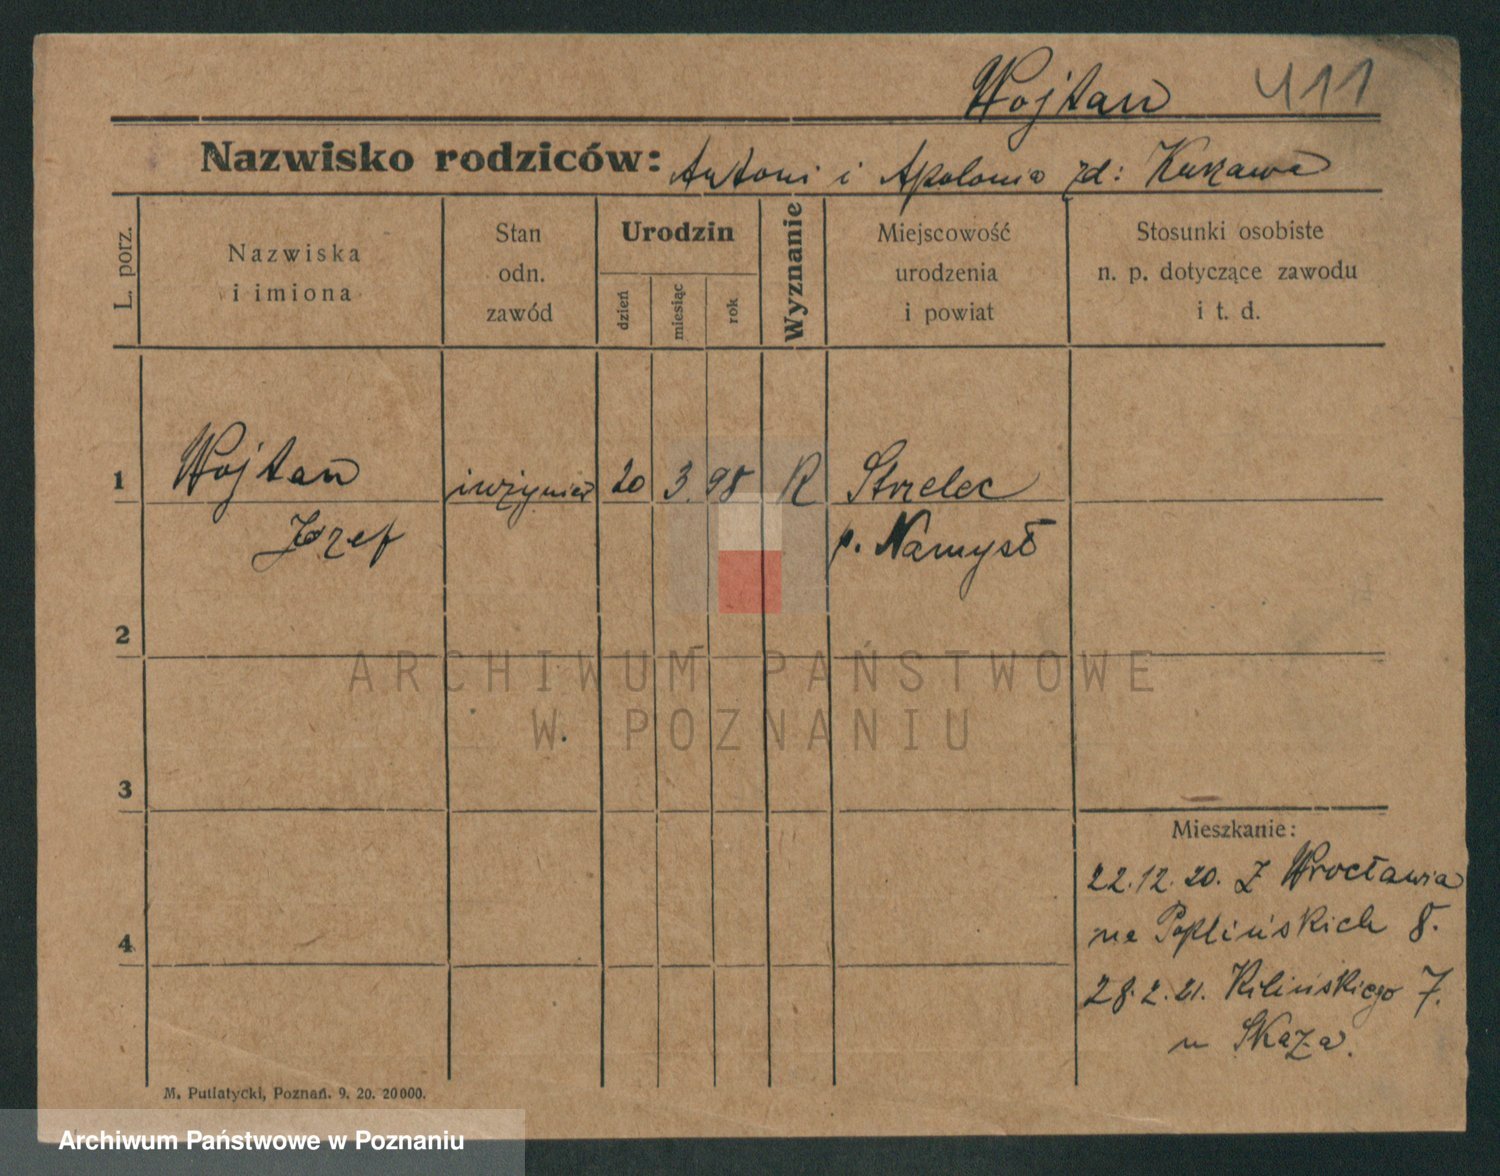 Wojtan 411
Nazwisko rodziców: Antoni i Apolonia zd: Kurzawa
L. porz.
Nazwiska
i imiona
Stan
odn.
zawód
Urodzin
dzień
miesiąc
rok
Wyznanie
Miejscowość
urodzenia
i powiat
Stosunki osobiste
n. p. dotyczące zawodu
i t. d.
1 Wojtan inżynier 20 3. 98 R Strzelec
Józef p. Namysł
2
ARCHIWUM PAŃSTWOWE
W POZNANIU
3
Mieszkanie:
22.12.20. z Wrocławia
na Poplińskich 8.
4
28.2.21. Kilińskiego 7.
u Skaza.
M. Putiatycki, Poznań. 9. 20. 20000.
Archiwum Państwowe w Poznaniu